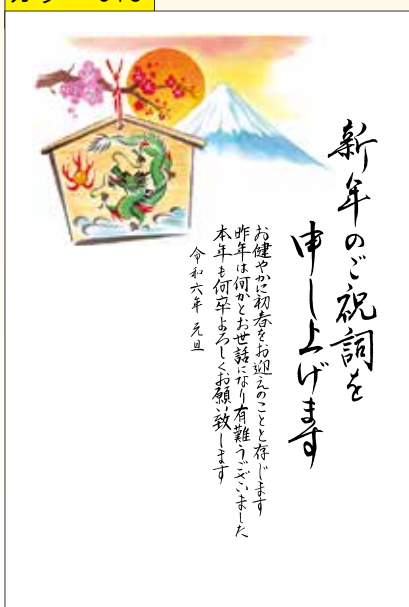 新年のご祝詞を
申し上げます
お健やかに初春をお迎えのことと存じます
昨年は何かとお世話になり有難うございました
本年も何卒よろしくお願い致します
令和六年 元旦